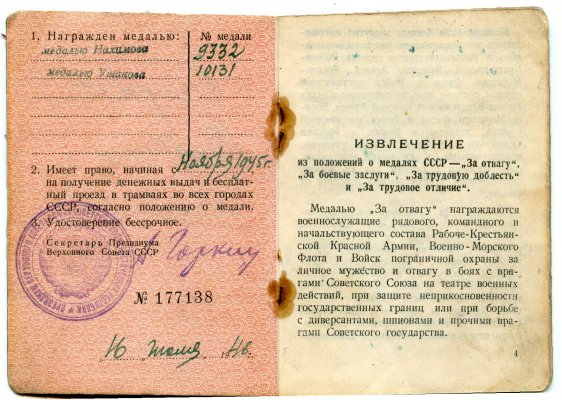 1. Награжден медалью:
№ медали
медалью Нахимова
9332
медалью Ушакова
10131
2. Имеет право, начиная с Ноября 1945 г.
на получение денежных выдач и бесплат-
ный проезд в трамваях во всех городах
СССР, согласно положению о медали.
3. Удостоверение бессрочное.
Секретарь Президиума
Верховного Совета СССР
А Горкин
№ 177138
16 июля 194 г.
ИЗВЛЕЧЕНИЕ
из положений о медалях СССР—„За отвагу“,
„За боевые заслуги“, „За трудовую доблесть“
и „За трудовое отличие“.
Медалью „За отвагу“ награждаются
военнослужащие рядового, командного и
начальствующего состава Рабоче-Крестьян-
ской Красной Армии, Военно-Морского
Флота и Войск пограничной охраны за
личное мужество и отвагу в боях с вра-
гами Советского Союза на театре военных
действий, при защите неприкосновенности
государственных границ или при борьбе
с диверсантами, шпионами и прочими вра-
гами Советского государства.
4